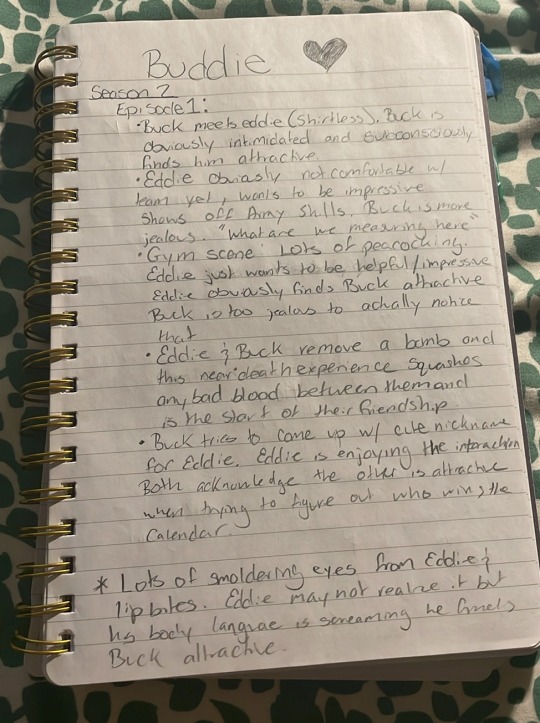 Buddie
Season 2
Episode 1:
• Buck meets eddie (shirtless). Buck is
obviously intimidated and subconsciously
finds him attractive.
• Eddie obviasly not comfortable w/
team yet, wants to be impressive
shows off Army skills. Buck is more
jealous. "what are we measuring here"
• Gym scene: Lots of peacocking.
Eddie just wants to be helpful/impressive
Eddie obviously finds Buck attractive
Buck is too jealous to actually notice
that
• Eddie & Buck remove a bomb and
this near death experience squashes
any bad blood between them and
is the start of their friendship
• Buck tries to come up w/ cute nickname
for Eddie. Eddie is enjoying the interaction
Both acknowledge the other is attractive
when trying to figure out who wins the
Calendar.
* Lots of smoldering eyes from Eddie &
lip bites. Eddie may not realize it but
his body languae is screaming he finds
Buck attractive.